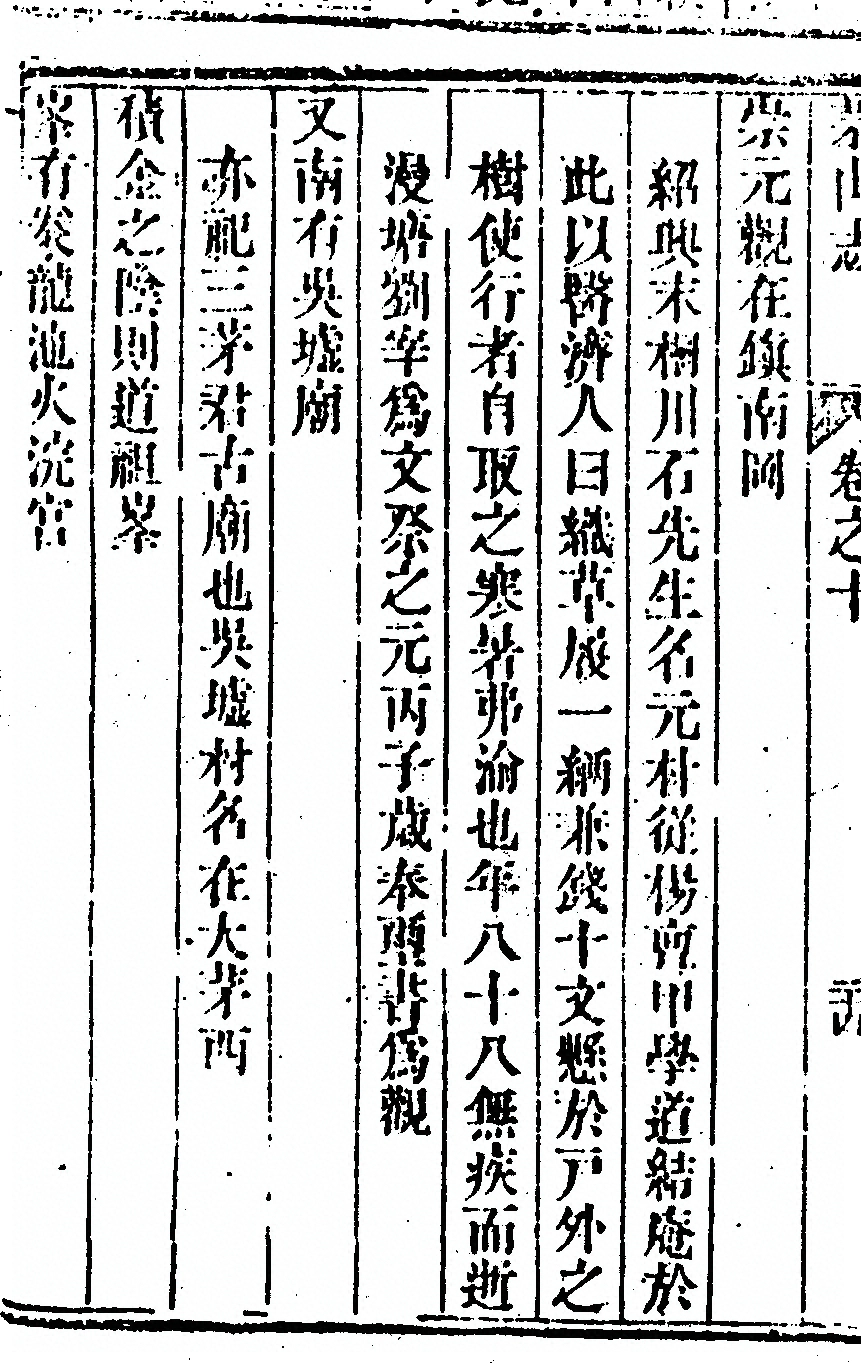 茅山志 卷之十
崇元觀在鎮南岡
紹興末櫟川石先生名元朴從楊真甲學道結庵於
此以醫濟人日織草屨一緉兼錢十文懸於戸外之
樹使行者自取之寒暑弗渝也年八十八無疾而逝
漫塘劉宰爲文祭之元丙子歳奉璽書爲觀
又南有吳墟廟
亦祀三茅君古廟也吳墟村名在大茅西
積金之陰則道祖峯
峯有发龍池火浣宮